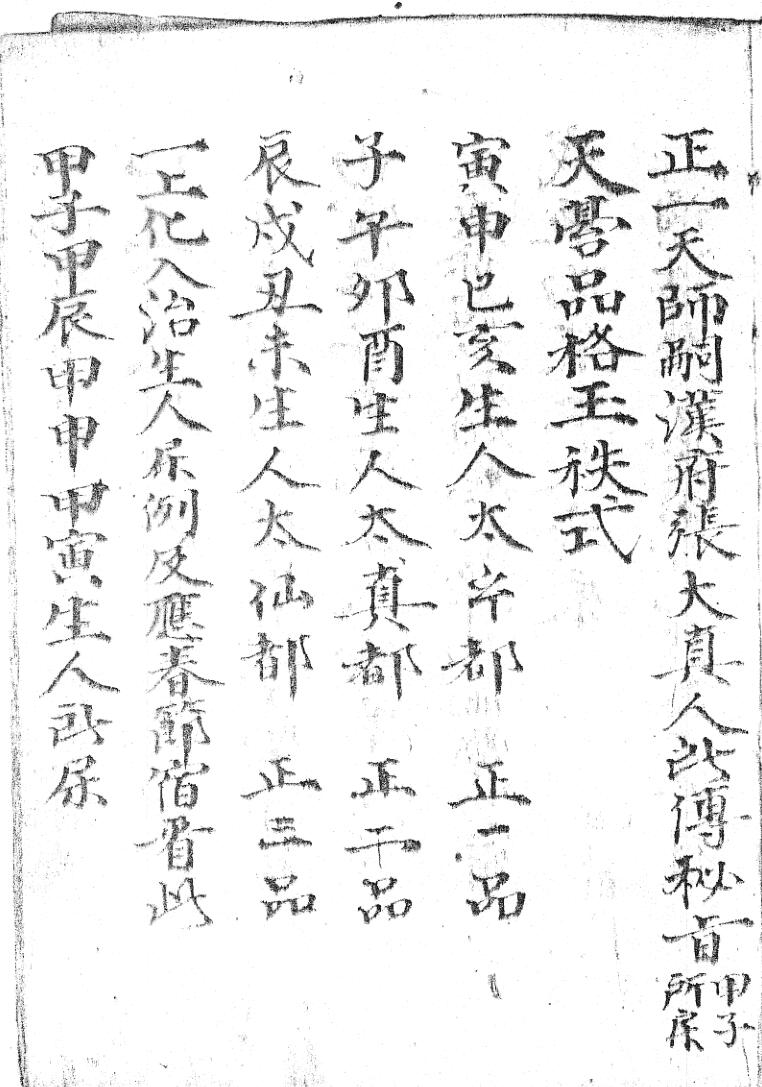 正一天師嗣漢府張大真人此傳秘旨甲子所屎
天㬱品格玉秩式
寅申巳亥生人太岁都 正一品
子午卯酉生人太真都 正二品
辰戌丑未生人太仙都 正三品
一上化入治生人屎例及應春節宿省此
甲子甲辰甲申甲寅生人此屎